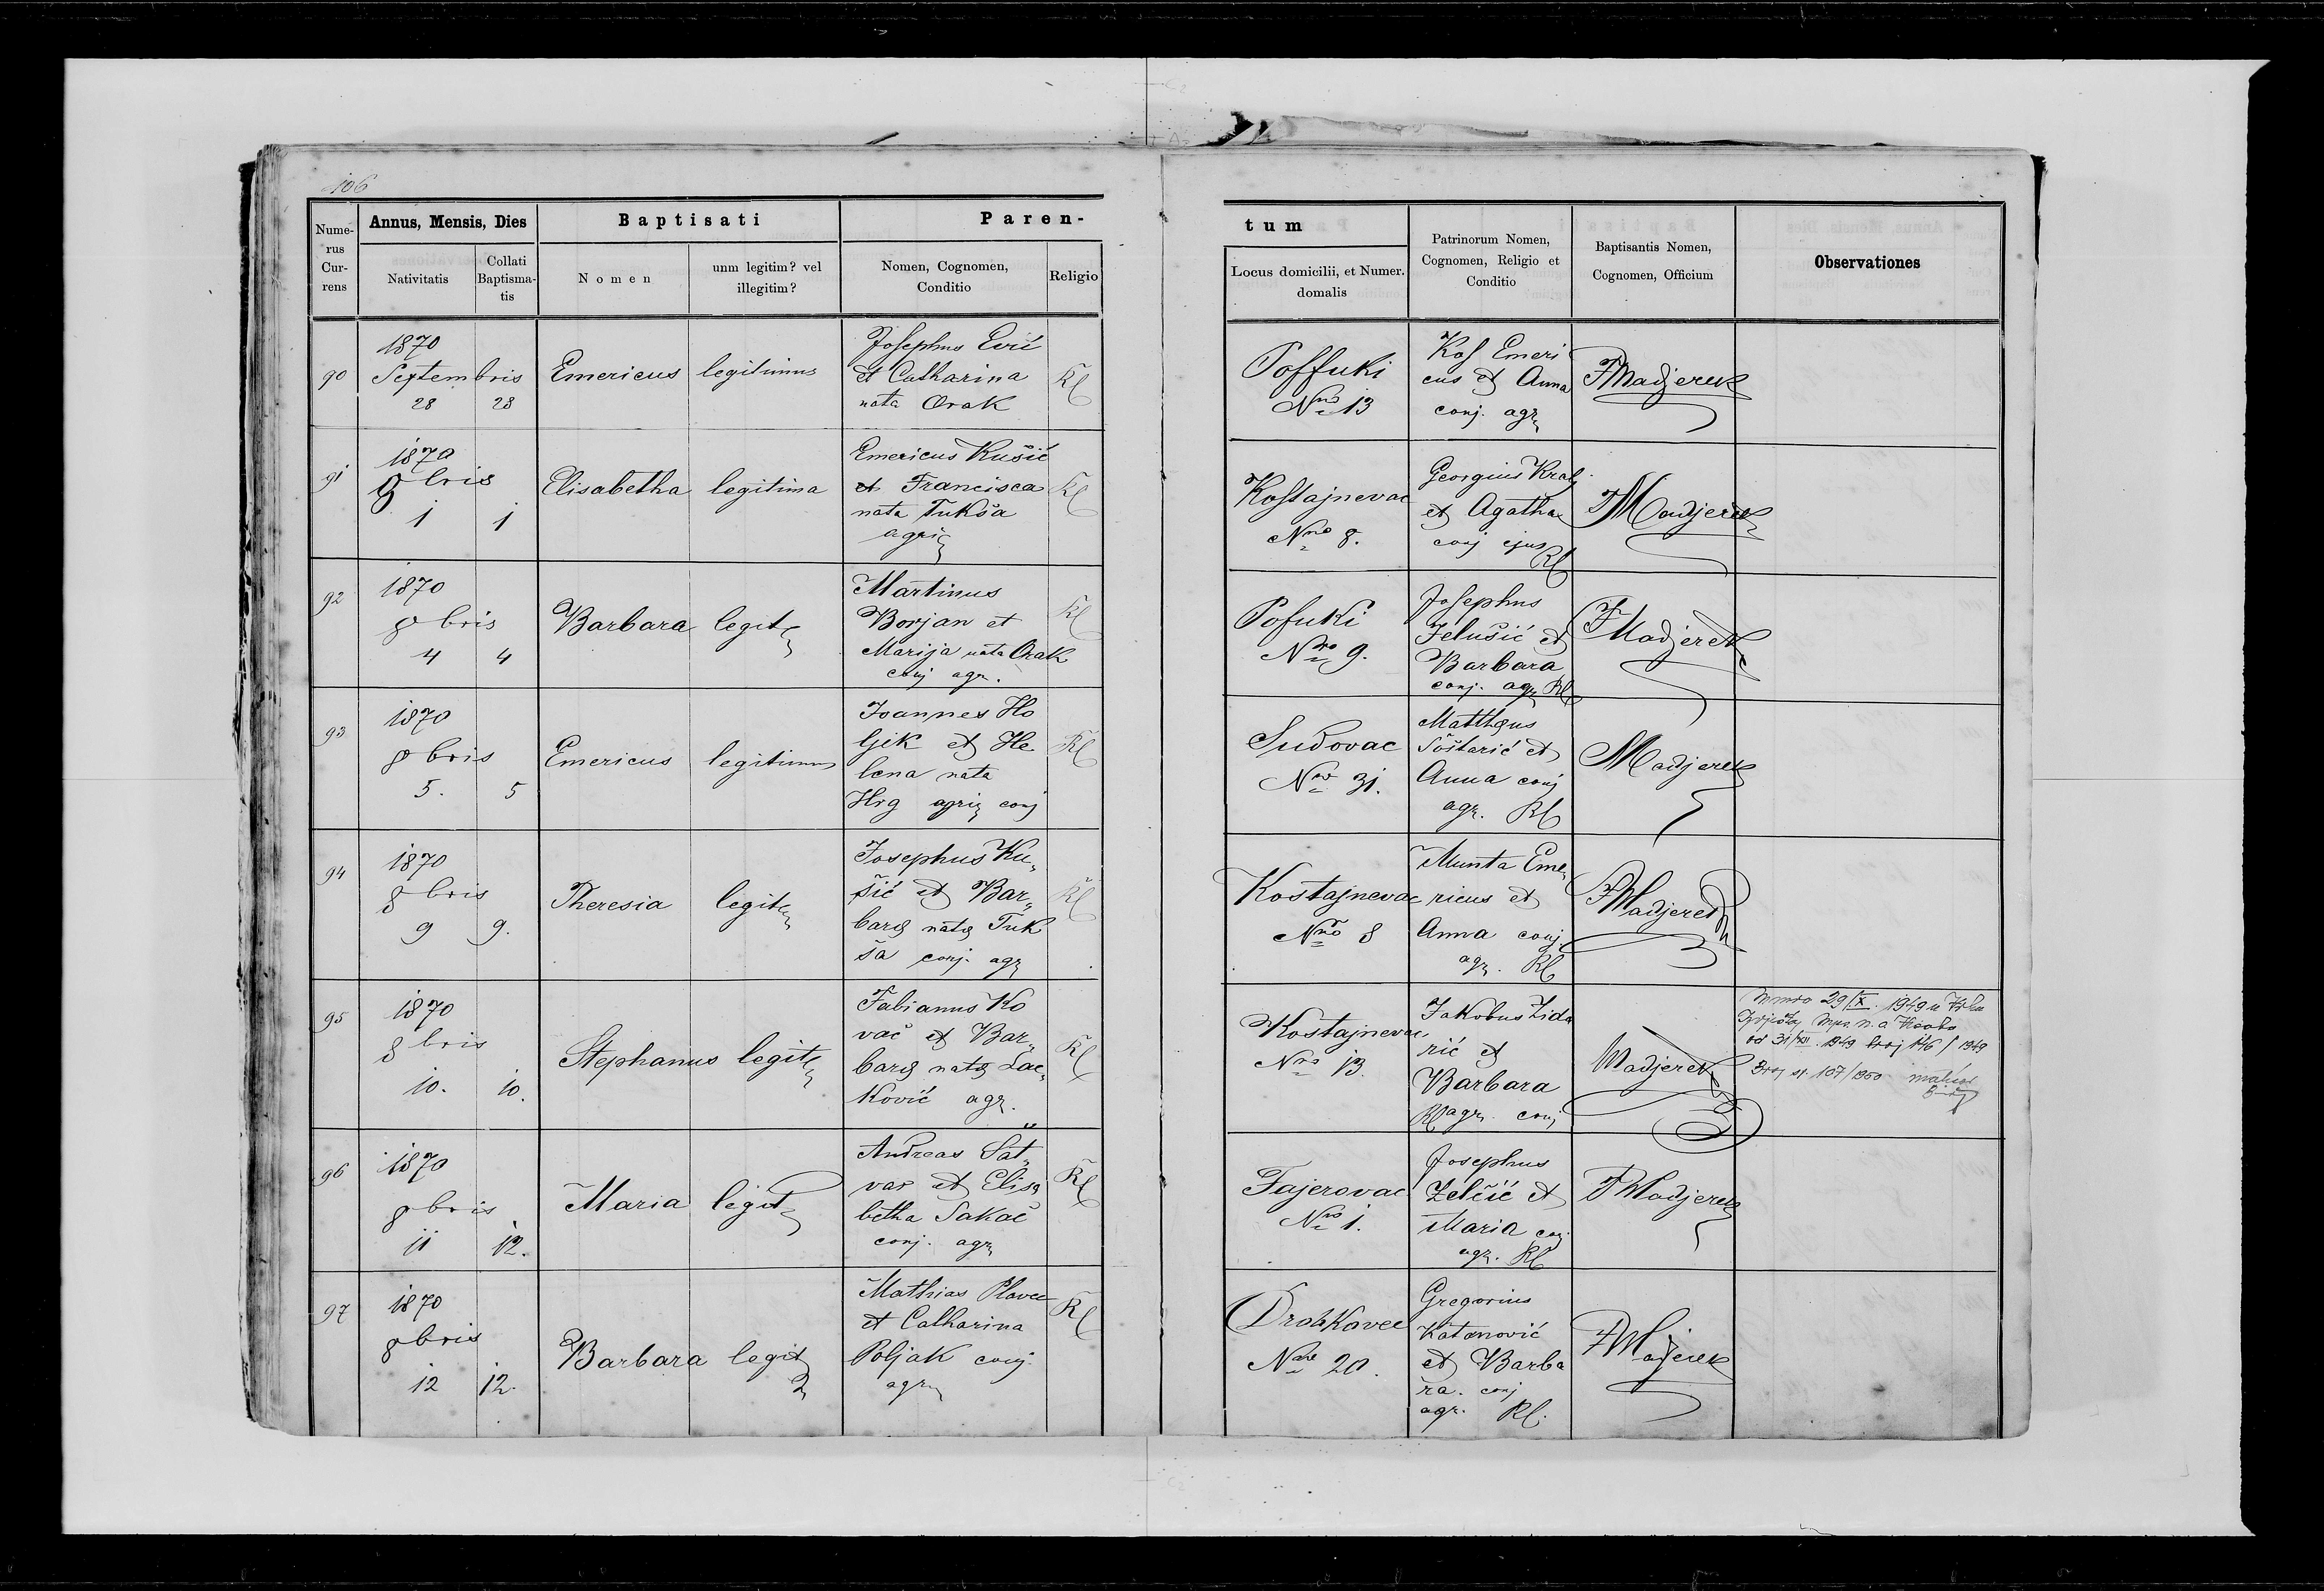 106
Nume-
rus
Cur-
rens
Annus, Mensis, Dies
Nativitatis
Collati
Baptisma-
tis
Baptisati
Nomen
unm legitim? vel
illegitim?
Paren-
Nomen, Cognomen,
Conditio
Religio
tum
Locus domicilii, et Numer.
domalis
Patrinorum Nomen,
Cognomen, Religio et
Conditio
Baptisantis Nomen,
Cognomen, Officium
Observationes
90
1870
Septembris
28 28
Emericus
legitimus
Josephus Ević
et Catharina
nata Orak
RC
Poffuki
Nro 13
Kos Emeri
cus et Anna
conj. agr
FMadjerek
91
1870
8bris
1 1
Elisabetha
legitima
Emericus Kušić
et Francisca
nata Tukša
agric
RC
Kostajnevac
Nro 8.
Georgius Kralj
et Agatha
conj ejus
RC
FMadjerek
92
1870
8bris
4 4
Barbara
legit
Martinus
Borjan et
Marija nata Orak
conj agr.
RC
Pofuki
Nro 9.
Josephus
Jelušić et
Barbara
conj. agr RC
FMadjerek
93
1870
8bris
5. 5
Emericus
legitimus
Joannes Ho
ljik et He
lena nata
Hrg agric conj
RC
Sudovac
Nro 31.
Matthæus
Šoštarić et
Anna conj
agr. RC
Madjerek
94
1870
8bris
9 9.
Theresia
legit
Josephus Ku„
šić et Bar„
baræ natæ Tuk
ša conj. agr
RC
Kostajnevac
Nro 8
Munta Eme„
ricus et
Anna conj.
agr. RC
FMadjerek
95
1870
8bris
10. 10.
Stephanus
legit
Fabianus Ko
vač et Bar„
baræ natæ Lac„
ković agr.
RC
Kostajnevac
Nro 13.
Jakobus Zida
rić et
Barbara
RC agr. conj
Madjerek
29/IX. 1949 u
od 31/XII. 1949 broj 146/1949
107/1950
96
1870
8bris
11 12.
Maria
legit
Andreas Šat„
var et Elisa
betha Sakač
conj. agr
RC
Fajerovac
Nro 1.
Josephus
Zelčić et
Maria conj
agr. RC
FMadjerek
97
1870
8bris
12 12.
Barbara
legit
Mathias Plavec
et Catharina
Poljak conj
agr
RC
Drohkovec
Nro 20.
Gregorius
Katanović
et Barba
ra. conj
agr. RC.
FMadjerek